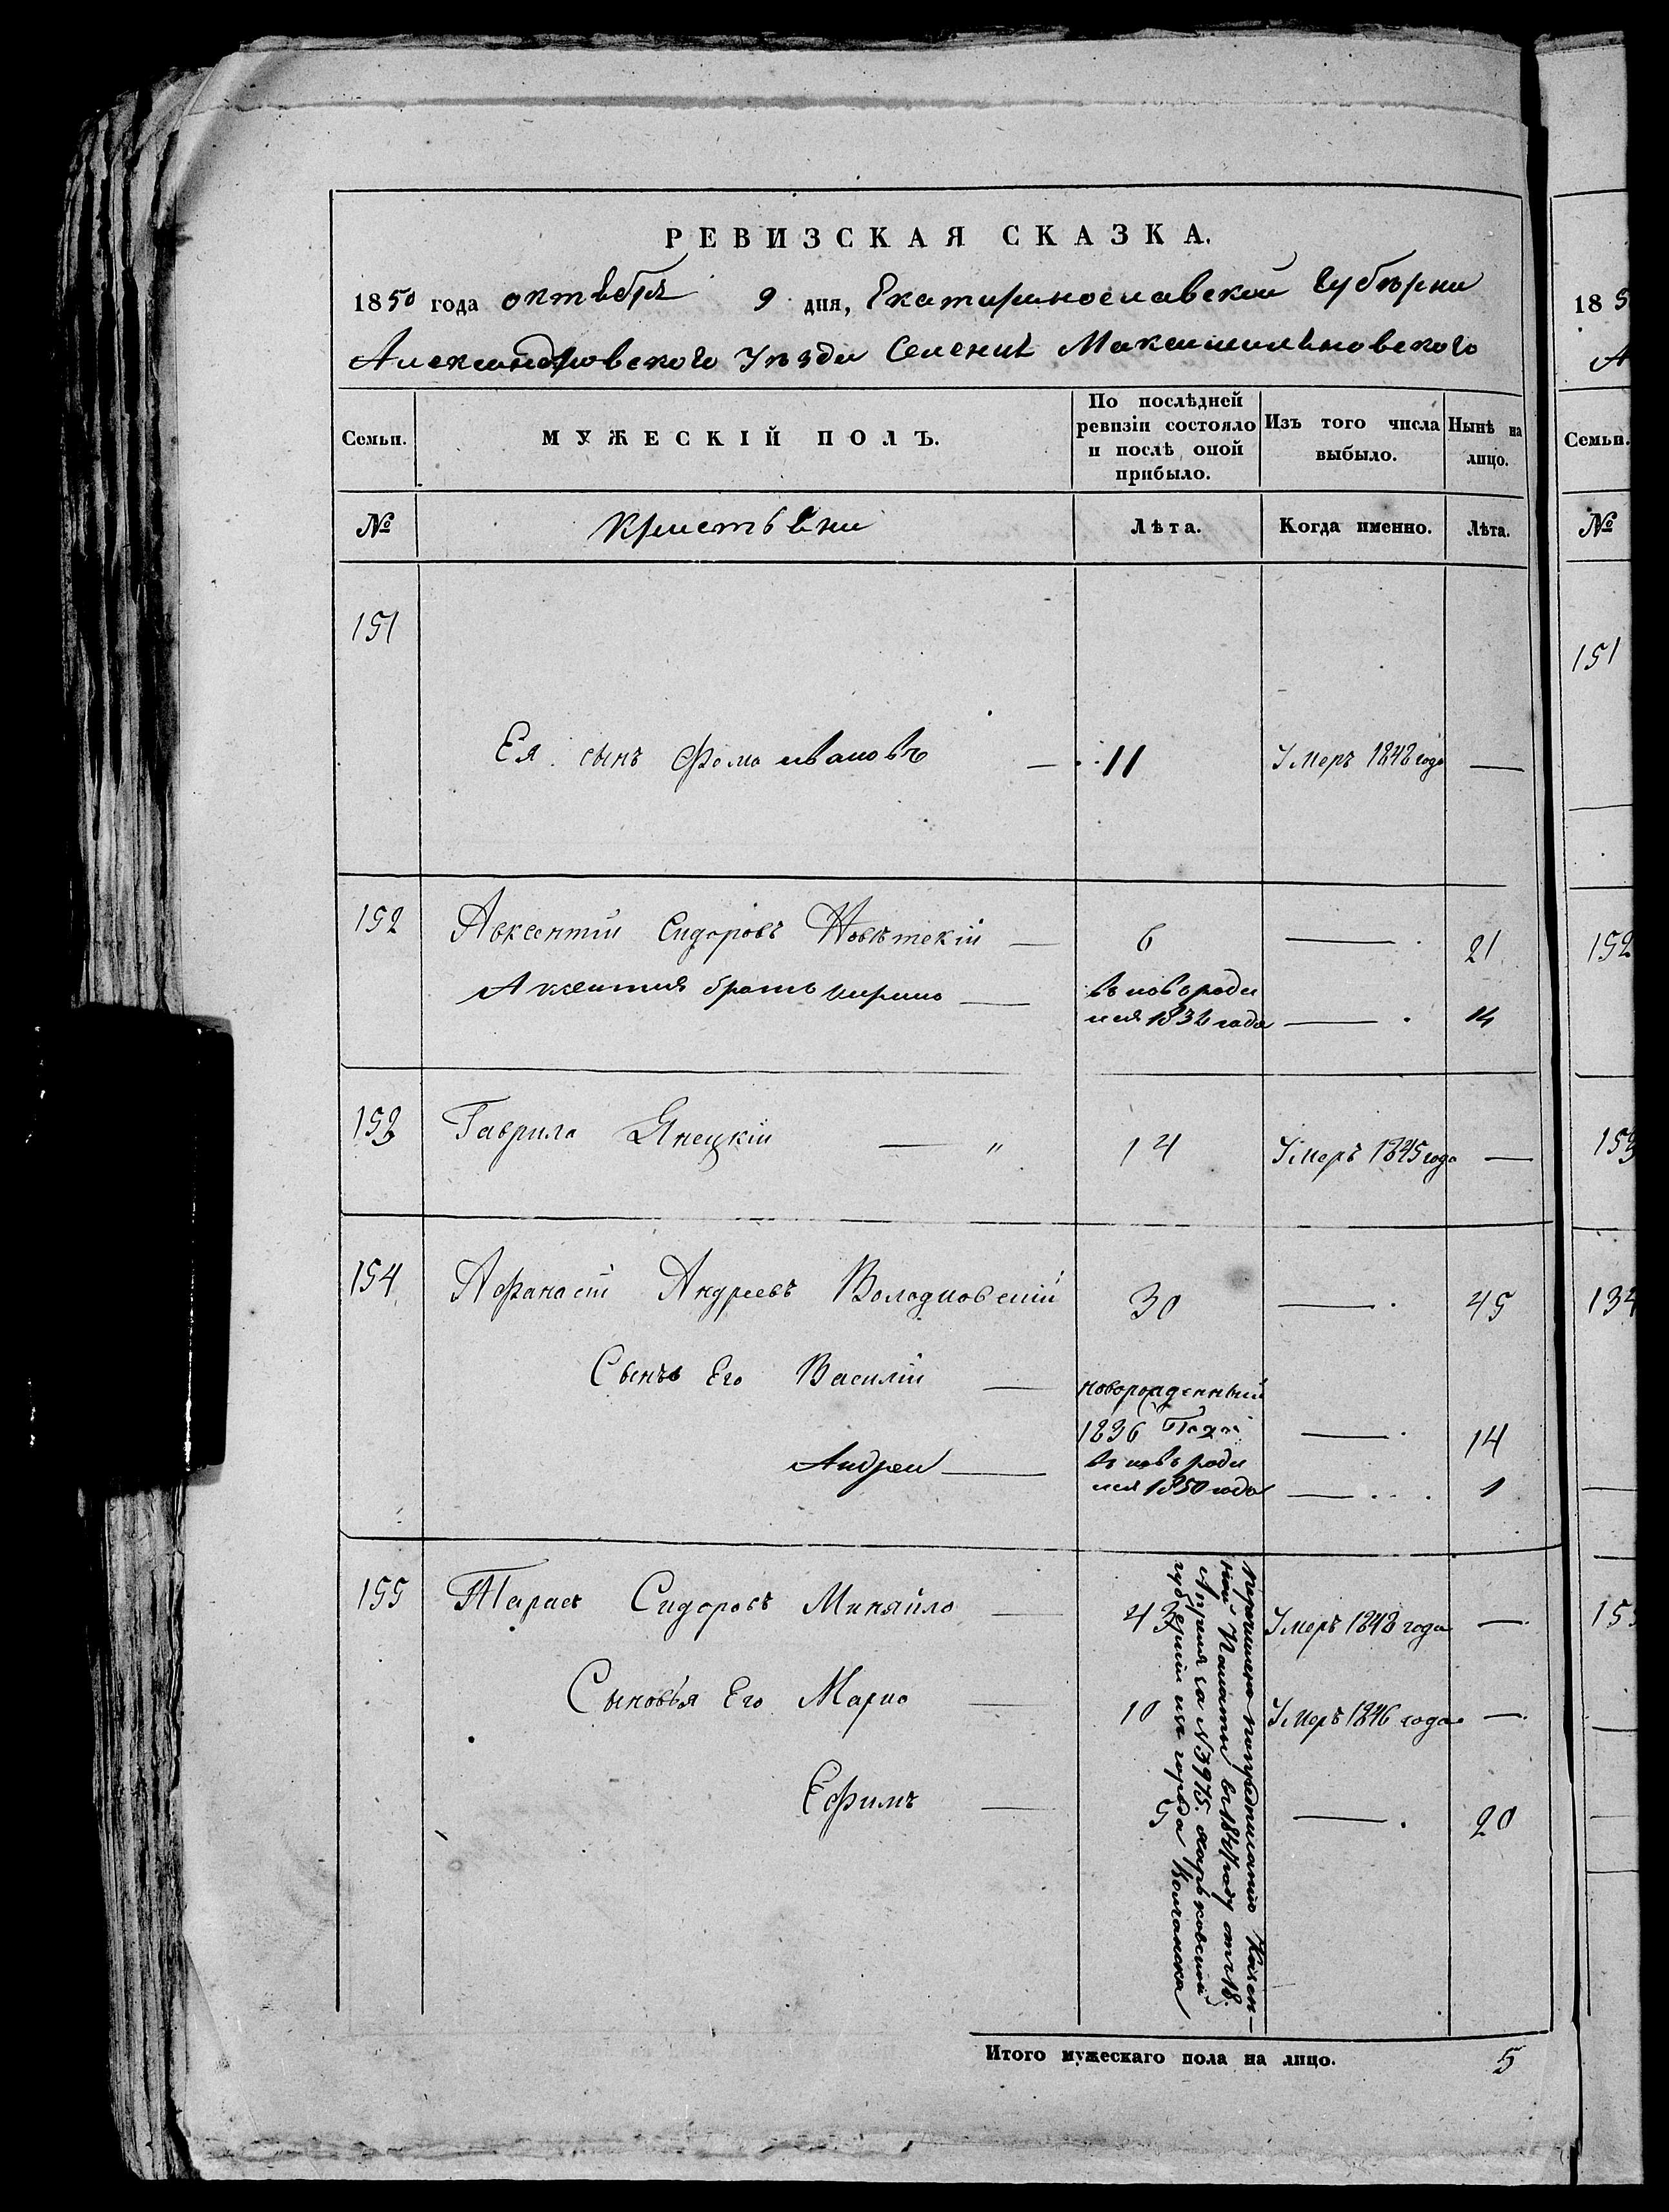 РЕВИЗСКАЯ СКАЗКА.
1850 года октября 9 дня, Екатеринославской Губернии
Александровского Уезда Селения Максимильяновского
Семьи.
МУЖЕСКІЙ ПОЛЪ.
По послѣдней
ревизіи состояло
и послѣ оной
прибыло.
Изъ того числа
выбыло.
Нынѣ на
лицо.
№
Кристьяни
Лѣта.
Когда именно.
Лѣта.
151
Ея сынъ Фома ивановъ — 11 Умеръ 1848 года —
152 Авксентій Сидоровъ — 6 — 21
Аксентия братъ — въновъроди
лся 1836 года — 14
153 Гаврила Янецкій — „ 14 Умеръ 1845 года —
154 Афанасій Андреевъ 30 — 45
Сынъ Его Василій — новорожденный
1836 Года — 14
Андрей — въновъроди
лся 1850 года — 1
155 Тарасъ Сидоровъ Миняйло — 43 Умеръ 1848 года —
Сыновья Его Марко — 10 Умеръ 1846 года —
Ефимъ — 5 — 20
Перечислено попредписанію Казен-
ной Палаты въ 1841 году отъ 18.
Апреля за №3975. Харьковской
губерніи изъ города Волчанска
Итого мужескаго пола на лицо. 5
18 5
А
Семьи.
№
151
152
153
134
155